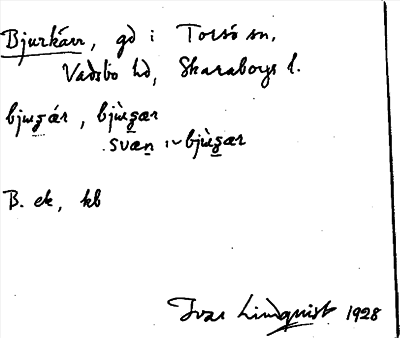 Bjurkärr, gd i Torsö sn,
Vadsbo hd, Skaraborgs l.
bjuʒár, bjùʒær
svæn ~ bjùʒær
B. ek, kb
Ivar Lindquist 1928